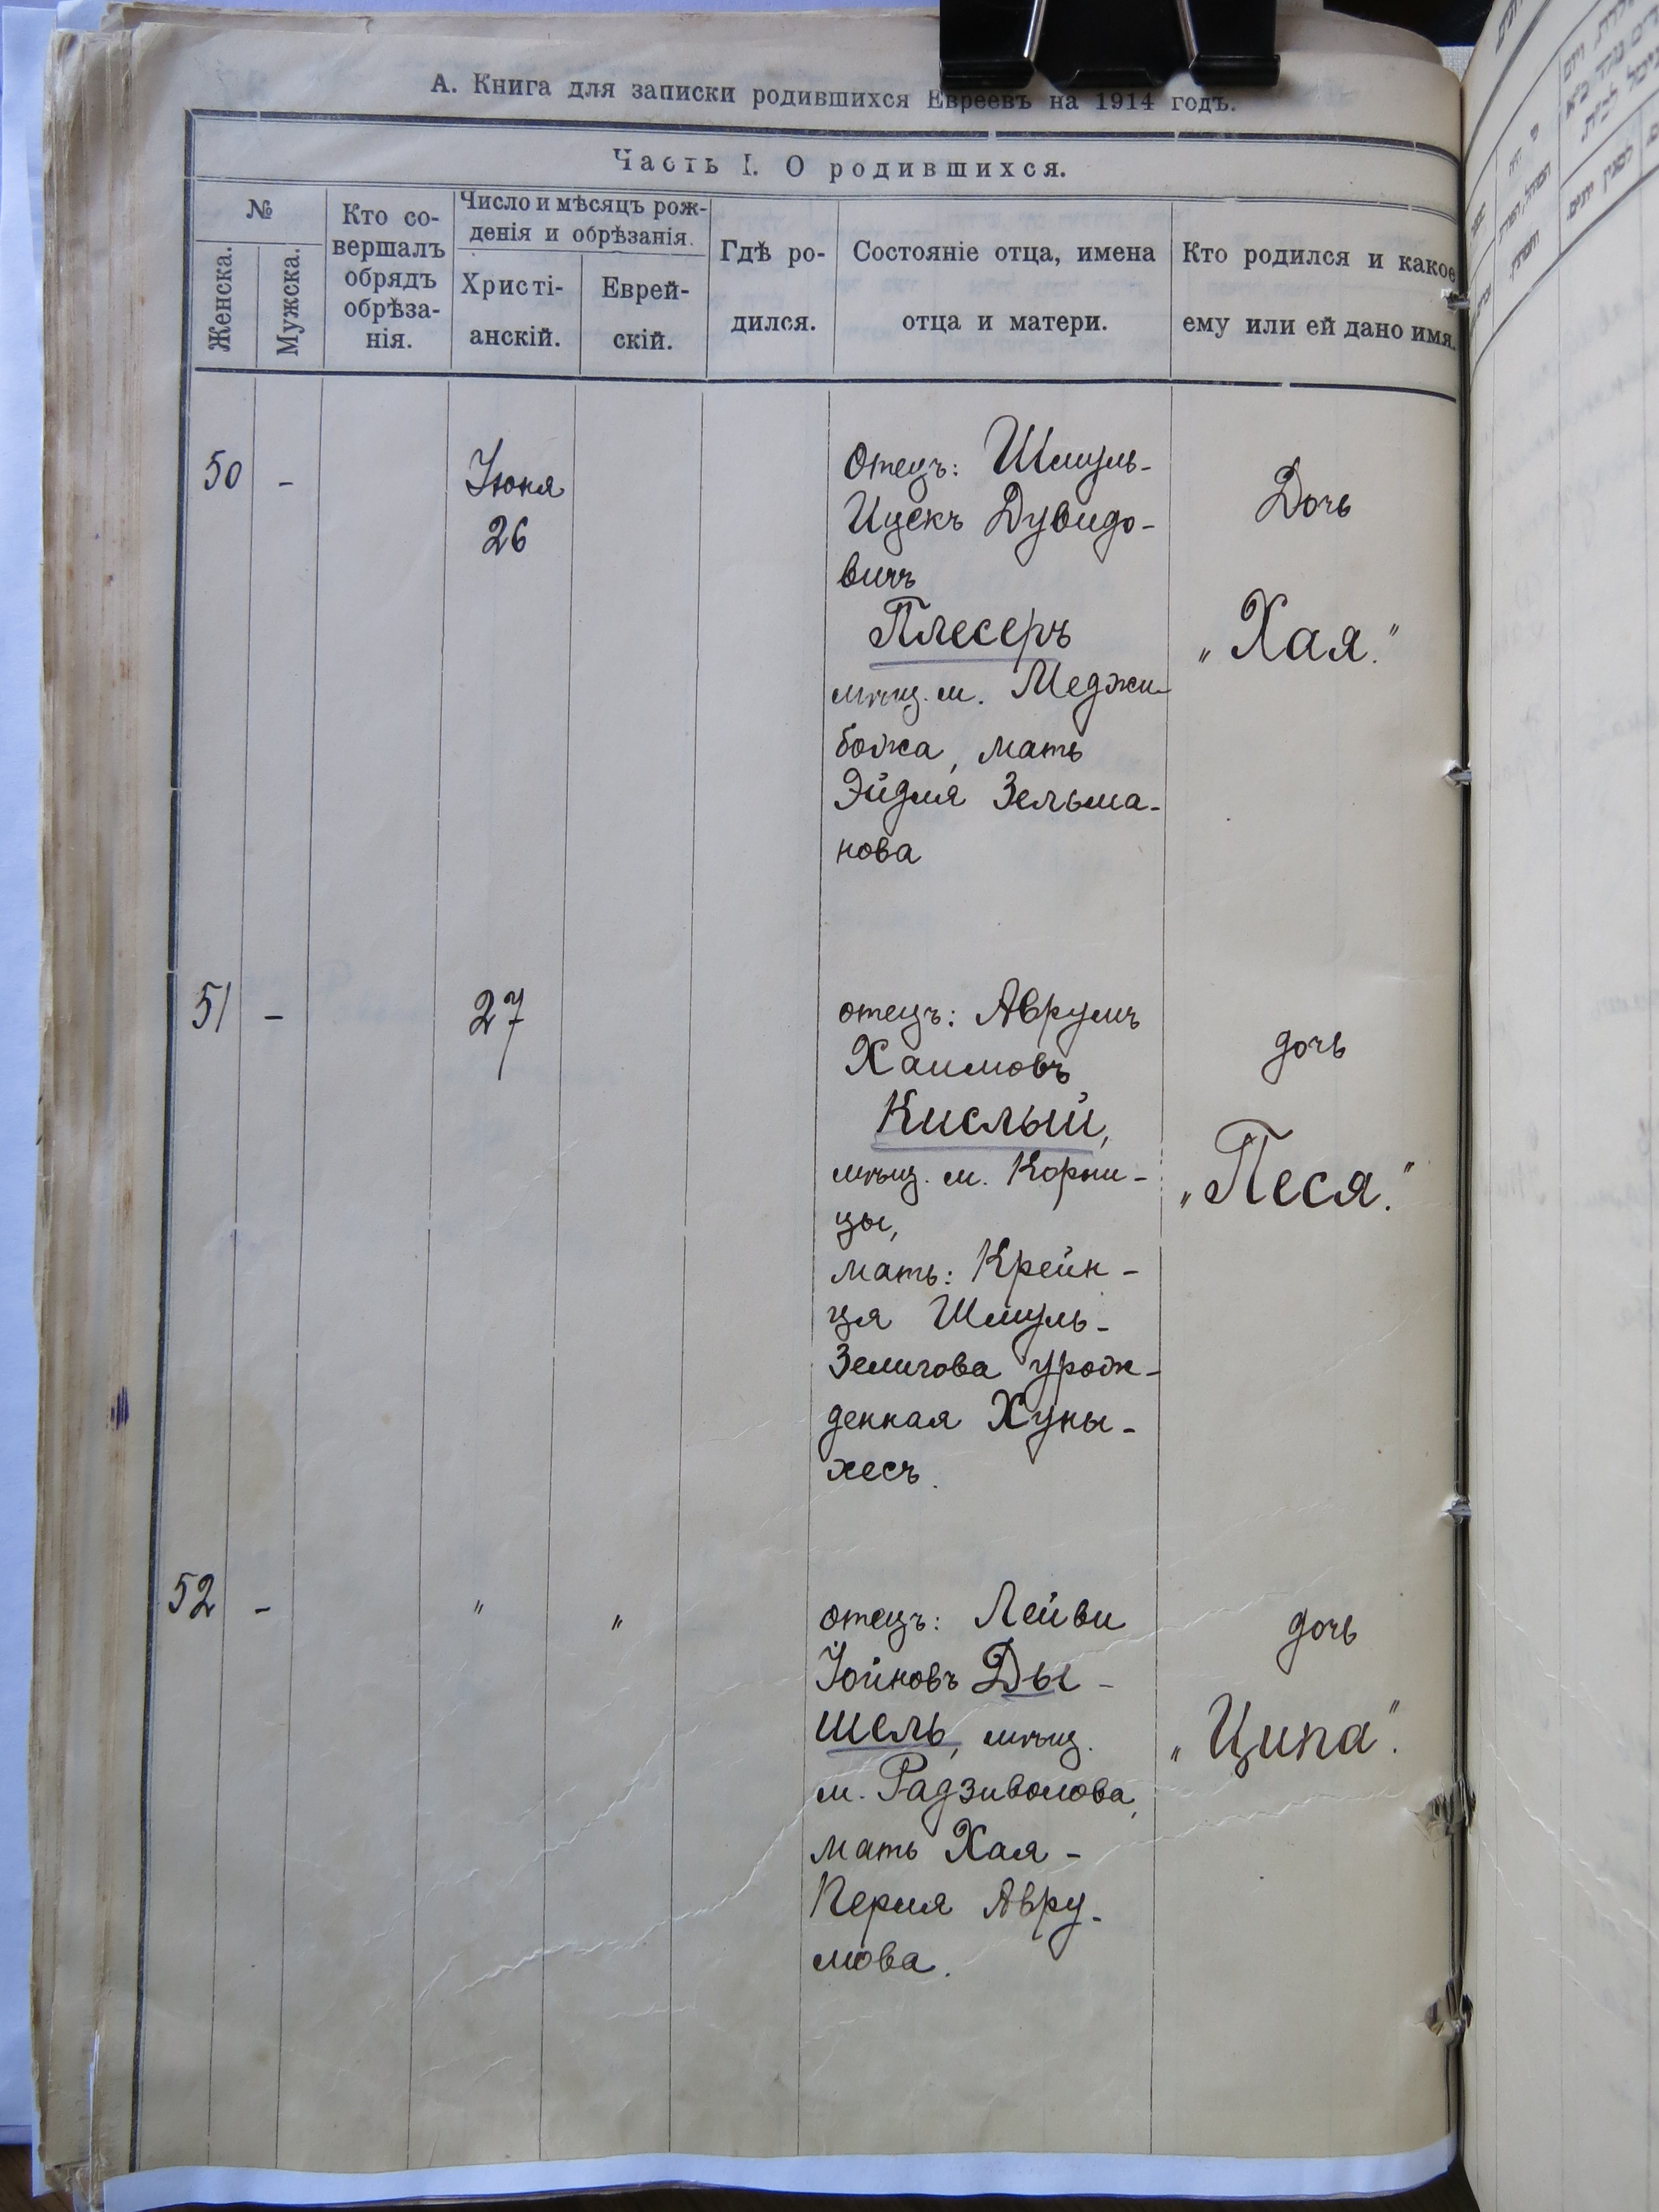 А. Книга для записки родившихся Евреевъ на 1914 годъ.
Часть I. О родившихся.
№
Женска.
Мужска.
Кто со-
вершалъ
обрядъ
обрѣза-
нія.
Число и мѣсяцъ рож-
денія и обрѣзанія.
Христі-
анскій.
Еврей-
скій.
Гдѣ ро-
дился.
Состояніе отца, имена
отца и матери.
Кто родился и какое
ему или ей дано имя.
50 -
Іюня
26
Отецъ: Шмуль-
Ицекъ Дувидо-
вичъ
Плесеръ
мѣщ. м. Меджи-
божа, мать
Эйдля Зельма-
нова
Дочь
„Хая."
51 -
27
отецъ: Аврумъ
Хаимовъ
Кислый,
мѣщ. м. Корни-
цы,
мать: Крейн-
ця Шмуль-
Зелигова урож-
денная Хуны-
хесъ.
дочь
„Песя."
52 -
"
"
отецъ: Лейви
Іойновъ Ды-
шель, мѣщ.
м. Радзиволова,
мать Хая-
Перля Авру-
мова.
дочь
„Ципа".